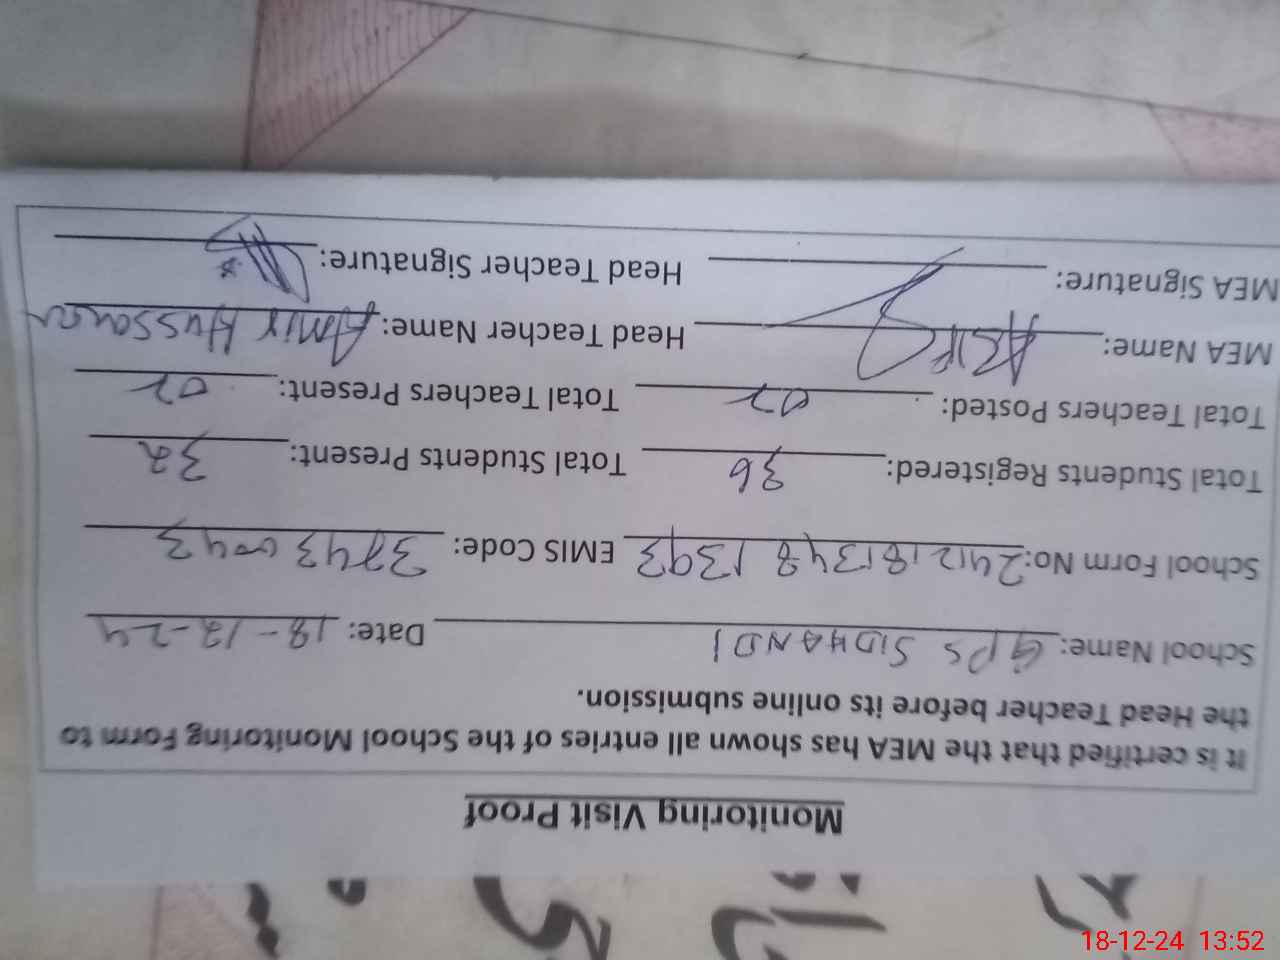 Monitoring Visit Proof
It is certified that the MEA has shown all entries of the School Monitoring Form to
the Head Teacher before its online submission.
School Name: GPS SIDHANDI Date: 18-12-24
School Form No: 24121813481393 EMIS Code: 37430043
Total Students Registered: 36 Total Students Present: 32
Total Teachers Posted: 02 Total Teachers Present: 02
MEA Name: Head Teacher Name: Amir Hussain
MEA Signature: Head Teacher Signature:
18-12-24 13:52